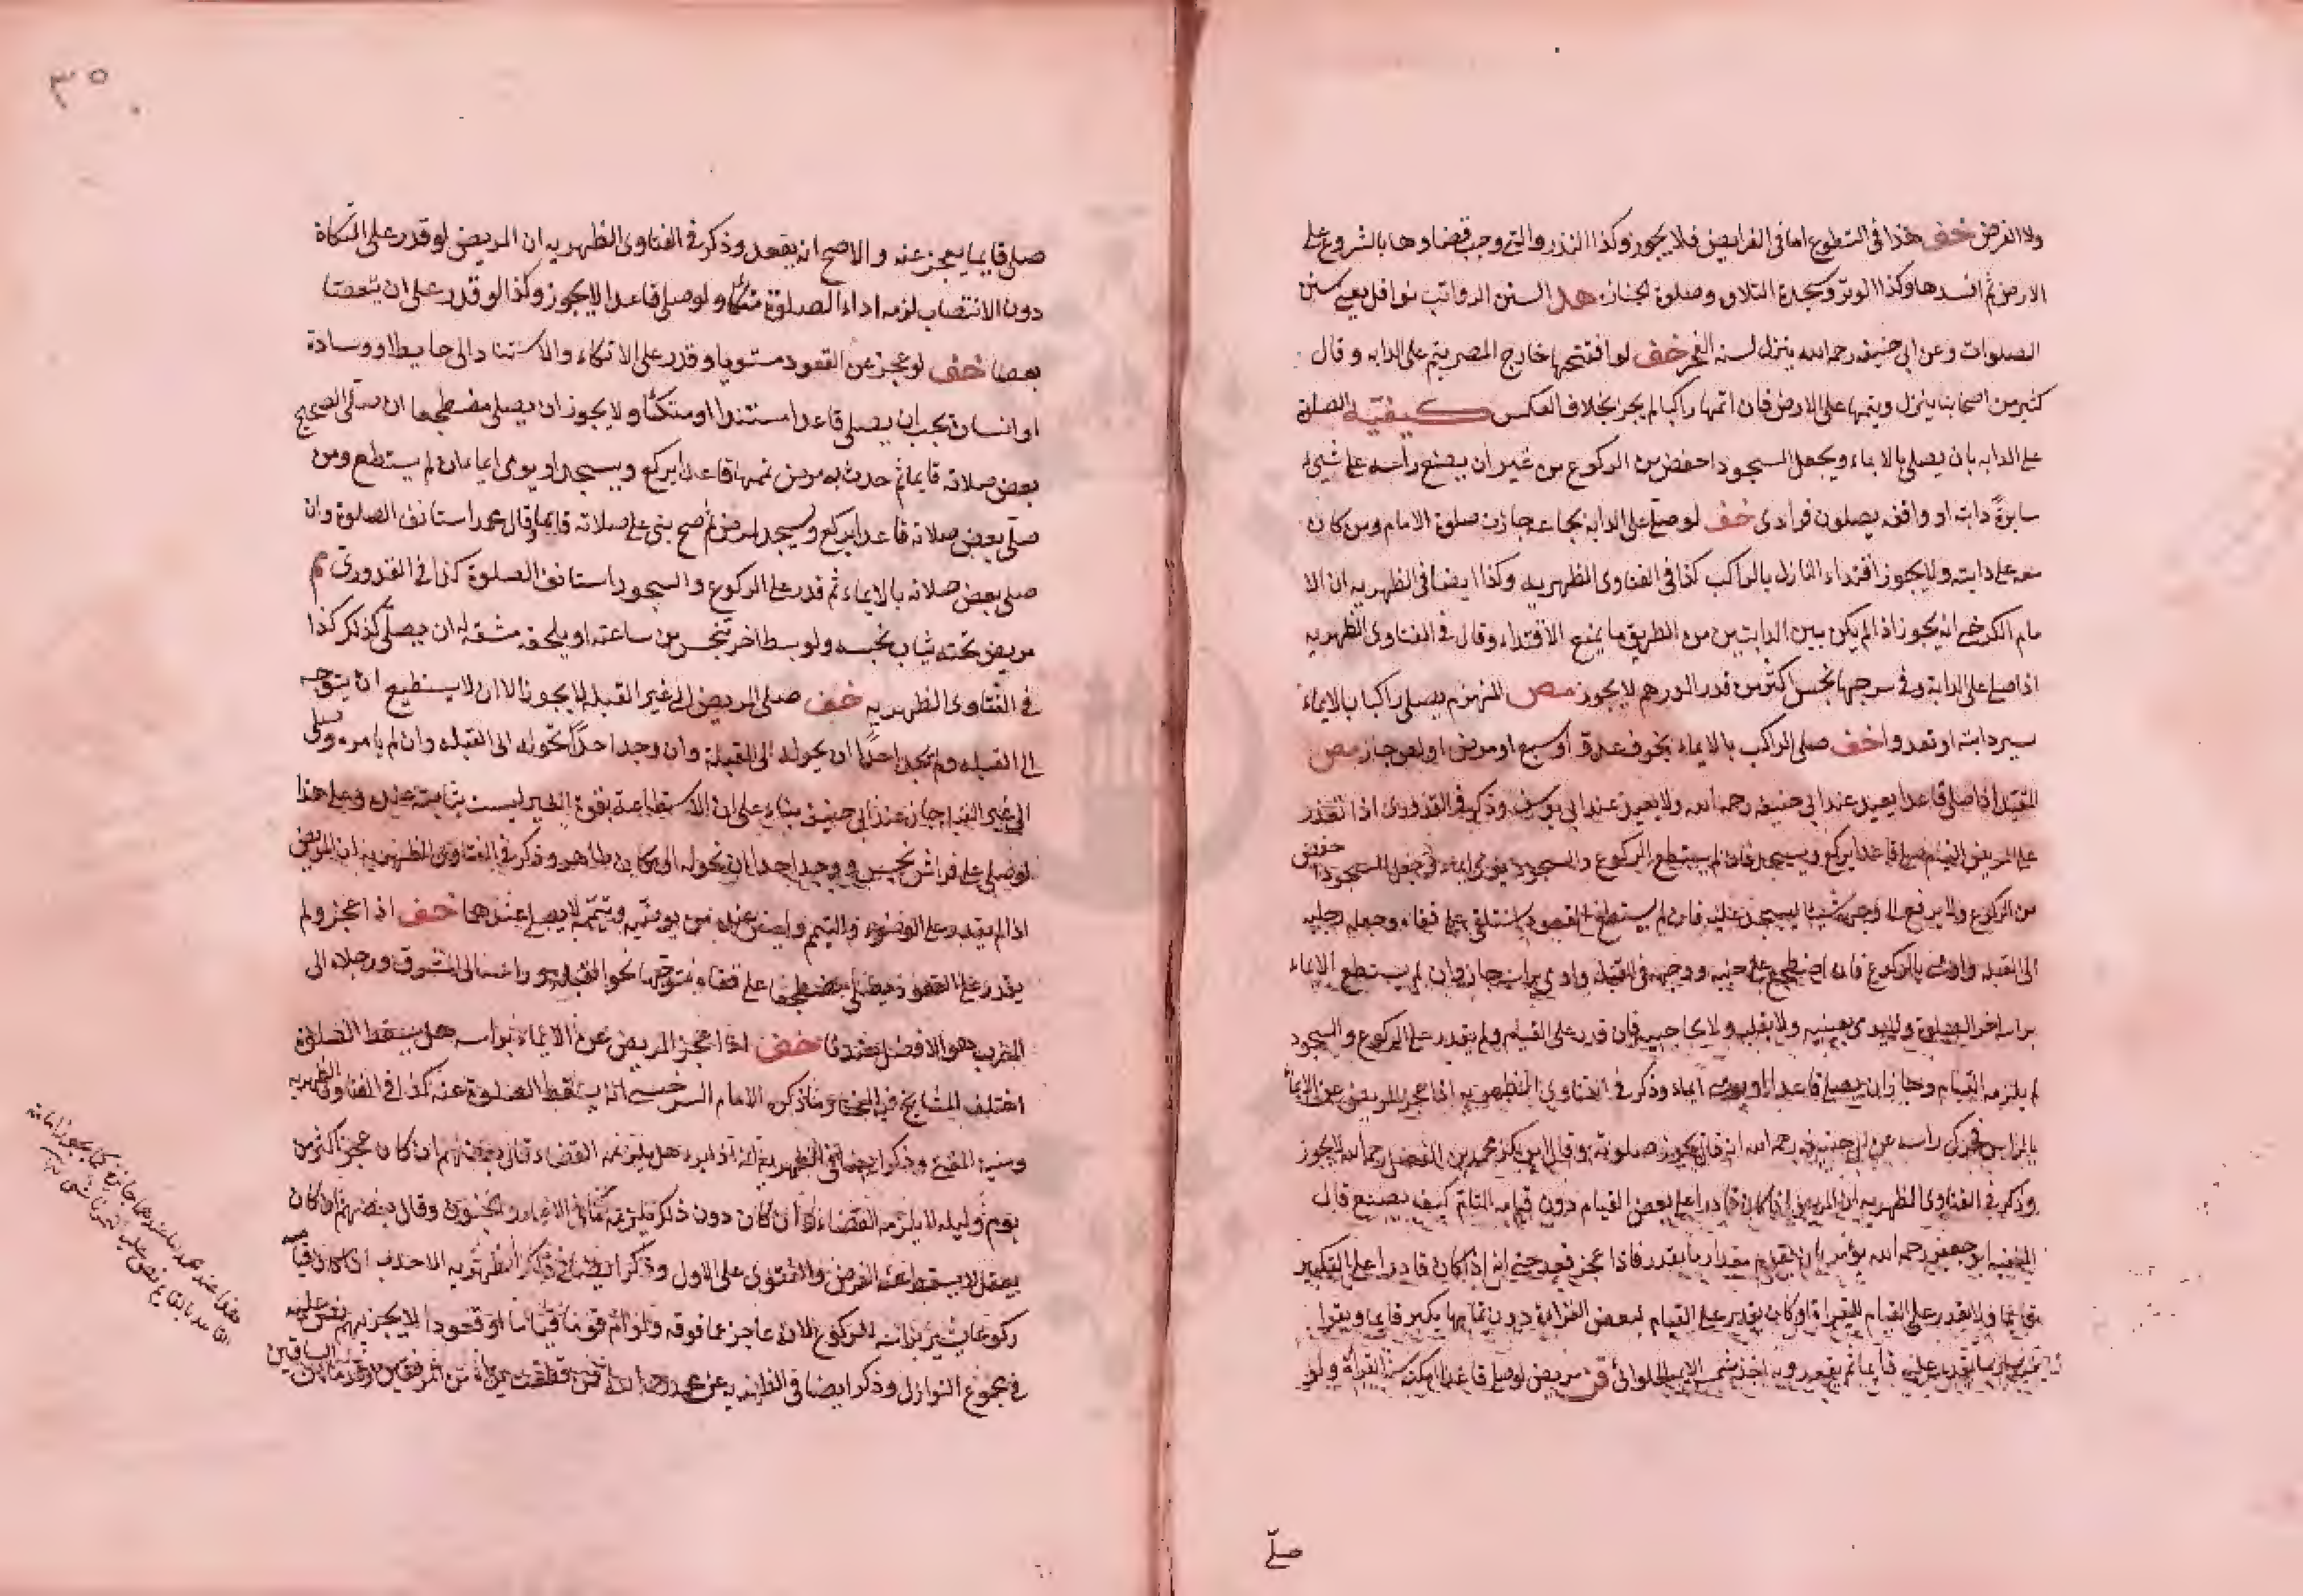 ولا الفرض خف هذا فى التطوع اما فى الفرايض فلا يجوز وكذا النذر والتى وجب قضاوها بالشروع على
الارض ثم افسدها وكذا الوتر وسجدة التلاوة وصلوة الجنازه هد السنن الرواتب نوافل يعنى سنن
الصلوات وعن ابى حنيفه رحمه الله ينزل لسنه الفجر خف لو افتتحها خارج المصر يتم على الدابه وقال
كثير من اصحابنا ينزل ويتمها على الارض فان اتمها راكبا لم يجز بخلاف العكس كيفيته الصلوة
على الدابه بان يصلى بالايماء ويجعل السجود اخفض من الركوع من غير ان يضع راسه على شىء
سايرة دابته او واقفه يصلون فرادى خف لو صلى على الدابه بجماعه جازت صلوة الامام ومن كان
معه على دابته ولا يجوز اقتداء النازل بالراكب كذا فى الفتاوى الظهريه وكذا ايضا فى الظهريه ان الا
مام الكرخى انه يجوز اذا لم يكن بين الدابتين من الطريق ما يمنع الاقتداء وقال فى الفتاوى الظهريه
اذا صلى على الدابة وفى سرجها نجس اكثر من قدر الدرهم لا يجوز مص المنهزم يصلى راكبا بالايماء
سير دابته او تعدوا خف صلى الراكب بالايماء بخوف عدو او سبع او مرض او لص جاز مص
المقيد اذا صلى قاعدا يعيد عند ابى حنيفه رحمه الله ولا يعيد عند ابى يوسف وذكر فى القدورى اذا تعذر
على المريض القيام صلى قاعدا يركع ويسجد فان لم يستطع الركوع والسجود يومى ايماء وجعل السجود اخفض
من الركوع ولا يرفع الى وجهه شيئا ليسجد عليه فان لم يستطع القعود استلقى على قفاه وجعل رجليه
الى القبله واومى بالركوع فان اضطجع على جنبه ووجهه فى القبله واومى براسه جاز وان لم يستطع الايماء
براسه اخر الصلوة ولا يومى بعينيه ولا بقلبه ولا بحاجبيه فان قدر على القيام ولم يقدر على الركوع والسجود
لم يلزمه القيام وجاز ان يصلى قاعدا يومى ايماء وذكر فى الفتاوى الظهريه اذا عجز المريض عن الايماء
بالراس فحرك راسه عن ابى حنيفه رحمه الله انه قال يجوز صلوته وقال ابن بكر محمد بن الفضل رحمه الله لا يجوز
وذكر فى الفتاوى الظهريه ان المريض اذا كان قادرا على بعض القيام دون قيامه التام كيف يصنع قال
الفقيه ابو جعفر رحمه الله يؤمر بان يقوم مقدار ما يقدر فاذا عجز قعد حتى انه اذا كان قادرا على التكبير
قايما ولا يقدر على القيام للقراءة او كان يقدر على القيام لبعض القراءة دون تمامها يكبر قايما ويقرا
ما يقدر عليه قايما ثم يقعد وبه اخذ شمس الايمه الحلوائى مريض لو صلى قاعدا امكنه القراءة ولو
صلى
٣٥
صلى قايما يعجز عنه والاصح انه يقعد وذكر فى الفتاوى الظهريه ان المريض لو قدر على التكاة
دون الانتصاب لزمه اداء الصلوة متكئا ولو صلى قاعدا لا يجوز وكذا لو قدر على ان يتعصا
بعصا خف لو عجز عن القعود مستويا وقدر على الاتكاء والاستناد الى حايط او وسادة
او انسان يجب ان يصلى قاعدا مستندا او متكئا ولا يجوز ان يصلى مضطجعا ان صلى الصحيح
بعض صلاته قايما ثم حدث به مرض تممها قاعدا يركع ويسجد او يومى ايماء ان لم يستطع ومن
صلى بعض صلاته قاعدا يركع ويسجد لمرض ثم صح بنى على صلاته قايما وقال محمد استانف الصلوة وان
صلى بعض صلاته بالايماء ثم قدر على الركوع والسجود استانف الصلوة كذا فى القدورى م
مريض تحته ثياب نجسه ولو بسط اخر تنجس من ساعته او يلحقه مشقه له ان يصلى كذلك كذا
فى الفتاوى الظهريه خف صلى المريض الى غير القبله لا يجوز الا ان لا يستطيع ان يتوجه
الى القبله ولم يجد احدا ان يحوله الى القبلة وان وجد احدا يحوله الى القبله وان لم يامره وصلى
الى غير القبله جاز عند ابى حنيفه بناء على ان الاستطاعة بقوة الغير ليست بثابته عنده وعلى هذا
لو صلى على فراش نجس ووجد احدا ان يحوله الى مكان طاهر وذكر فى الفتاوى الظهريه ان المريض
اذا لم يقدر على الوضوء والتيمم وليس عنده من يوضيه وييممه لا يصلى عندهما خف اذا عجز ولم
يقدر على القعود فيصلى مضطجعا على قفاه متوجها نحو القبله وراسه الى المشرق ورجلاه الى
المغرب هو الافضل عندنا خف اذا عجز المريض عن الايماء براسه هل يسقط الصلوة
اختلف المشايخ فيه المختار ما ذكره الامام السرخسى انه يسقط الصلوة عنه كذا فى الفتاوى الظهريه
ومنيه المفتى وذكر ايضا فى الظهريه هل يلزمه القضاء قال بعضهم ان كان عجز اكثر من
يوم وليله لا يلزمه القضاء وان كان دون ذلك يلزمه كما فى الاغماء والجنون وقال بعضهم ان كان
يعقل لا يسقط عنه الفرض والفتوى على الاول وذكر ايضا فى الظهريه الاحدب اذا كان قيامه
ركوعا يشير براسه للركوع لانه عاجز عما فوقه ولو ام قوما قياما او قعودا لا يجزيهم نص عليه
فى مجموع النوازل وذكر ايضا فى الظهريه عن محمد رحمه الله فى من قطعت يداه من المرفقين وقدماه من الساقين